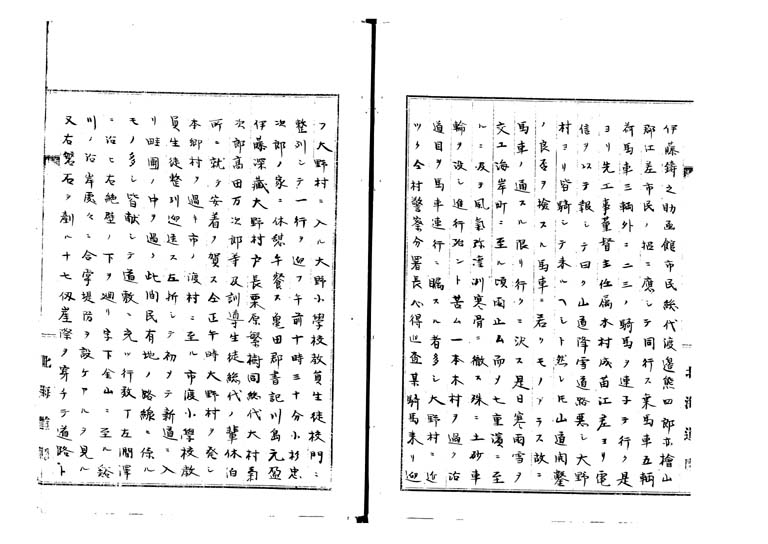 伊藤鋳之助函館市民総代渡邉熊四郎亦檜山
郡江差市民ノ招ニ應シテ同行ス乗馬車五輌
荷馬車三輌外ニ二三ノ騎馬ヲ連子テ行ク是
ヨリ先工事董督主任属木村成苗江差ヨリ電
信ヲ以テ報シテ曰ク山道降雪道路悪シ大野
村ヨリ皆騎シテ来ルヘシト然レ𪜈山道開鑿
ノ良否ヲ検スル馬車ニ若クモノアラス故ニ
馬車ノ通スル限リ行クニ決ス是日寒雨雪ヲ
交エ海岸町ニ至ル頃雨止ムノ而ヲ七重濱ニ至
ルニ及ヲ風氣弥凛冽寒骨ニ徹ス殊ニ土砂車
輪ヲ没シ進行殆ント苦ム一本木村ヲ過ク沿
道目ヲ馬車連行ニ矚スル者多シ大野村ニ近
ツク今村警察分署長心得巡査某騎馬来リ迎
フ大野村ニ入ル大野小學校教員生徒校門ニ
整列シテ一行ヲ迎フ午前十時三十分小杉忠
次郎ノ家ニ休憩午餐ス亀田郡書記川島元盈
伊藤深蔵大野村戸長栗原繁樹同総代大村菊
次郎高田万次郎等及訓導生徒総代ノ輩休泊
所ニ就テ安着ヲ賀ス仝正午時大野村ヲ発シ
本郷村ヲ過キ市ノ渡村ニ至ル市渡小學校教
員生徒整列迎送ス左折シテ初メテ新道ニ入
リ畦圃ノ中ヲ過ク此間民有地ノ路線ニ係ル
モノ多シ皆献シテ道敷ニ充ツ行数丁左澗澤
ニ沿ヒ右絶壁ノ下ヲ廻リ字下金山ニ至ル谿
川ノ沿岸處々ニ合掌堤防ヲ設ケアルヲ見ル
又右磐石ヲ削ル十七仭崖際ヲ穿チテ道路ト
北海道